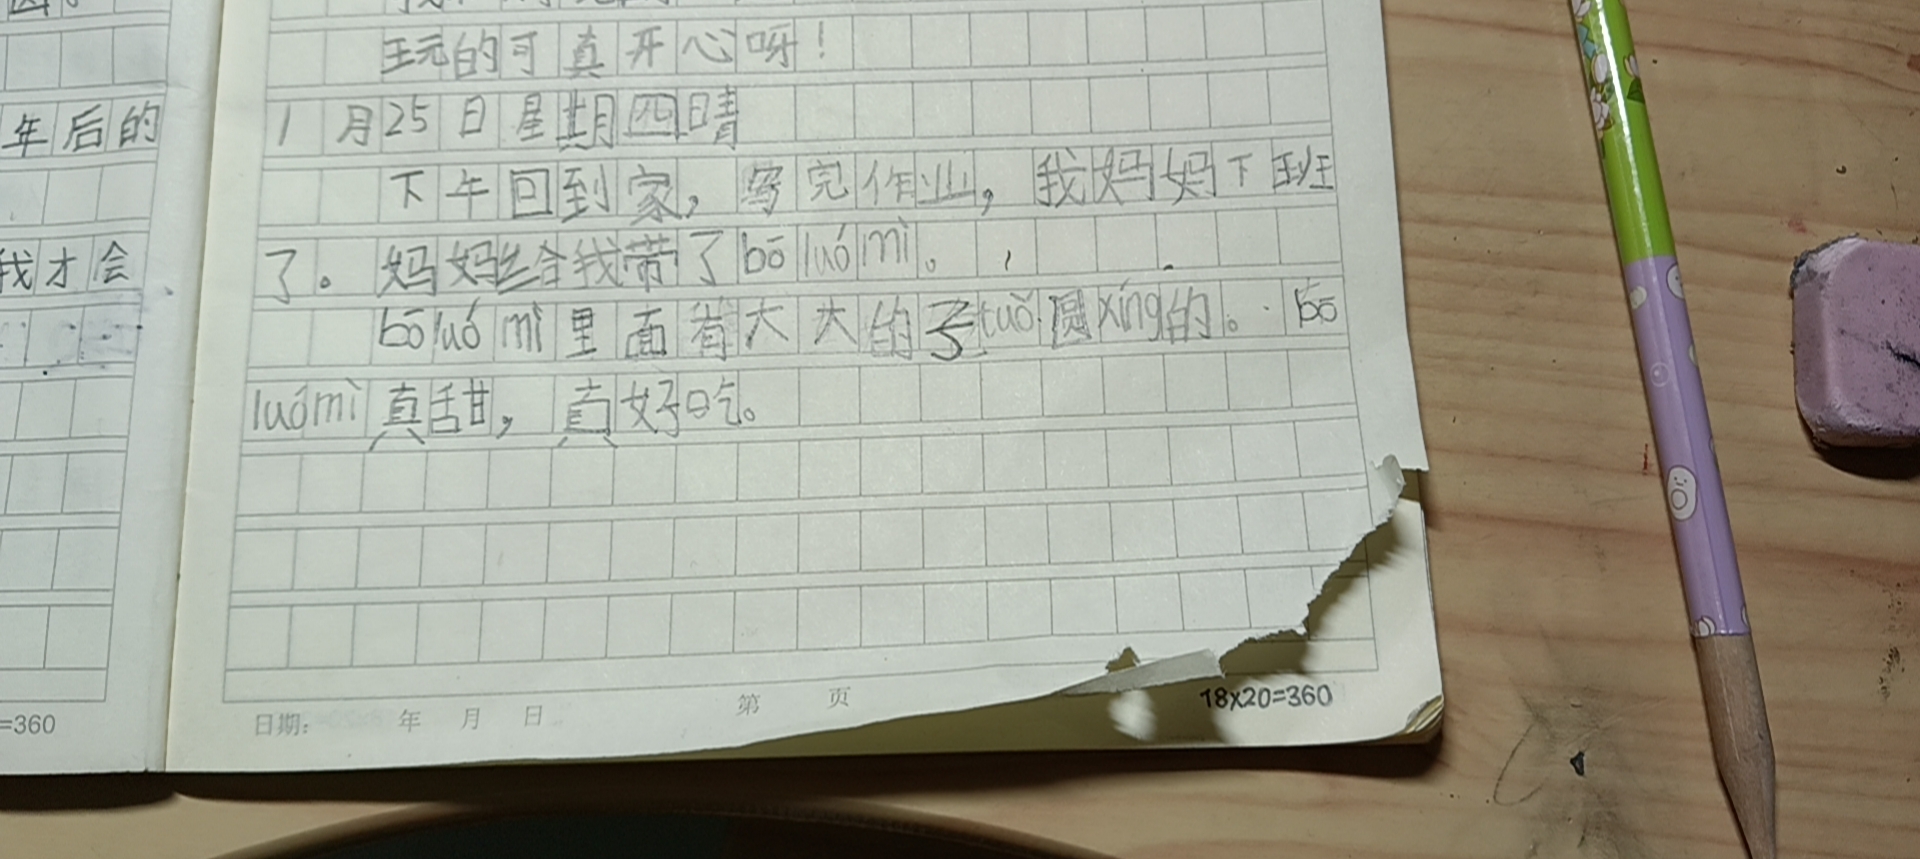 玩的可真开心呀！
1月25日星期四晴
下午回到家，写完作业，我妈妈下班
了。妈妈给我带了bō luó mì。
bō luó mì里面有大大的子tuǒ圆xíng的。bō
luó mì真甜，真好吃。
日期： 年 月 日
第 页
18x20=360
年后的
我才会
=360